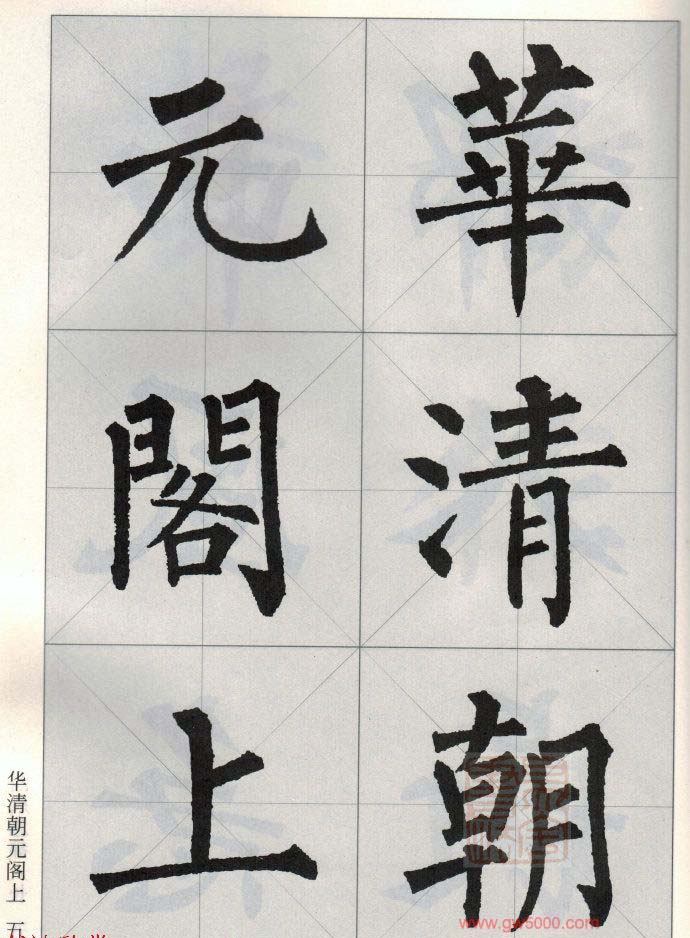 華清朝
元閣上
华清朝元阁上 五
www.gw5000.com